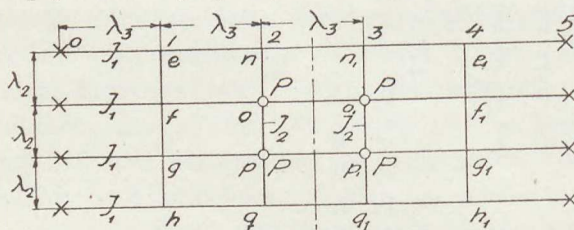 λ₃ λ₃ λ₃
0 1 2 3 4 5
J₁ e n n₁ e₁
λ₂ P P
J₁ f o o₁ f₁
λ₂ J₂ J₂
J₁ g p P p₁ P g₁
λ₂
J₁ h q q₁ h₁